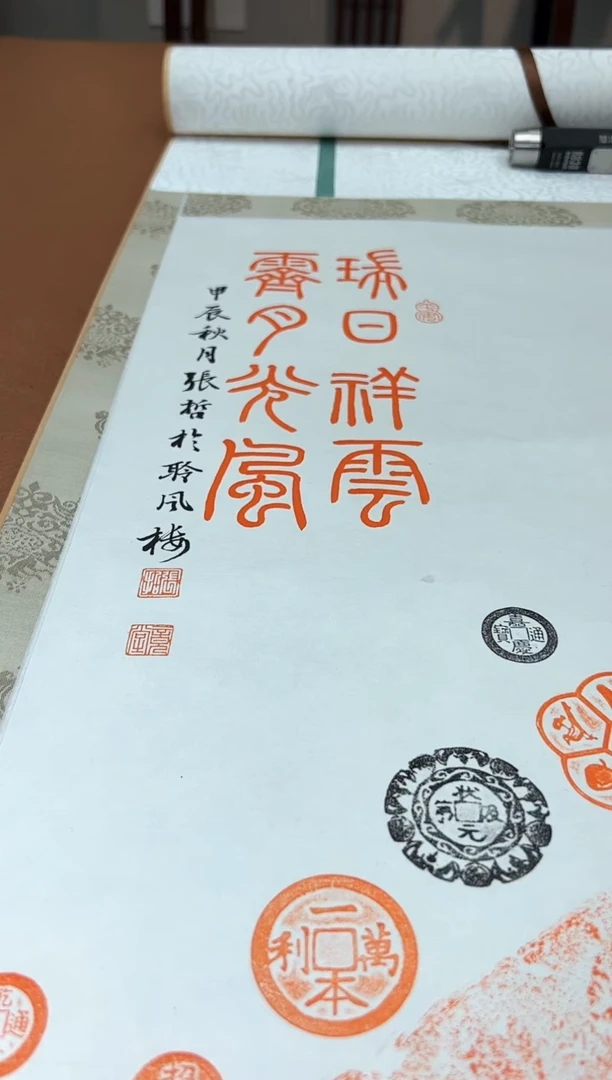 瑞日祥雲
霽月光風
甲辰秋月張哲於聆風樓
張哲
嘉慶通寶
状元及第
一本萬利
乾
通
招